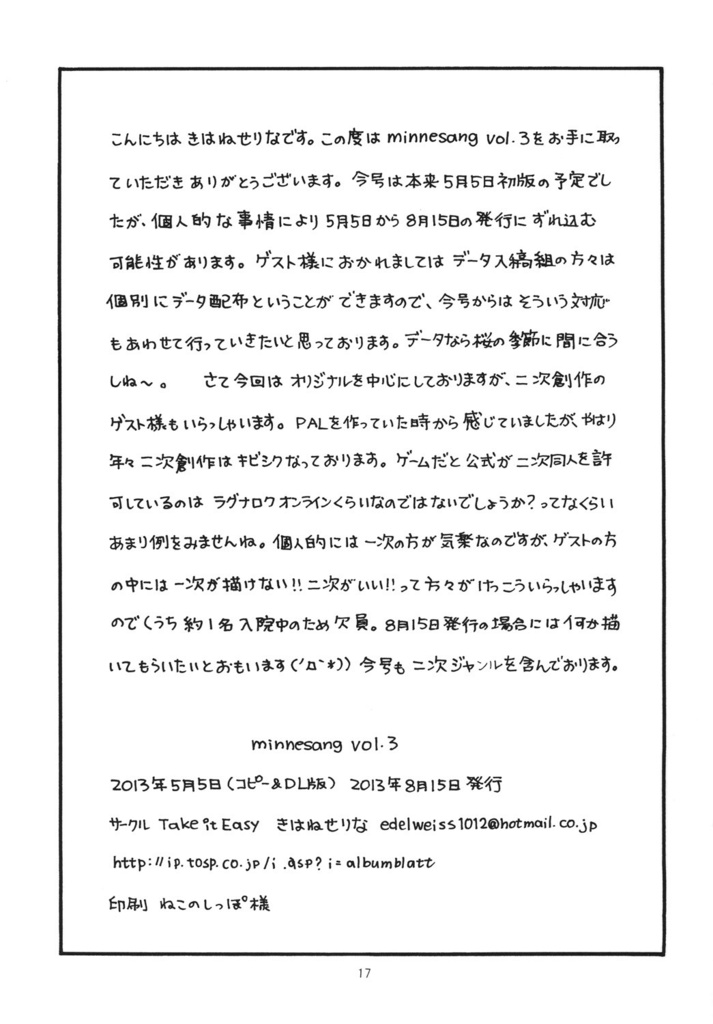 こんにちは きはねせりなです。この度は minnesang vol.3をお手に取っ
ていただき ありがとうございます。今号は本来5月5日初版の予定でし
たが、個人的な事情により 5月5日から 8月15日の発行に ずれ込む
可能性があります。ゲスト様におかれましては データ入稿組の方々は
個別にデータ配布ということが できますので、今号からは そういう対応
もあわせて行っていきたいと思っております。データなら桜の季節に間に合う
しね〜。 さて今回は オリジナルを中心にしておりますが、二次創作の
ゲスト様もいらっしゃいます。PALを作っていた時から感じていましたが、やはり
年々二次創作は キビシクなっております。ゲームだと公式が二次同人を許
可しているのは ラグナロクオンラインくらいなのではないでしょうか?ってなくらい
あまり例をみませんね。個人的には 一次の方が気楽なのですが、ゲストの方
の中には 一次が描けない!!二次がいい!!って方々がけっこういらっしゃいます
ので(うち 約1名 入院中のため 欠員。8月15日発行の場合には何か描
いてもらいたいとおもいます(´Д`*)) 今号も 二次ジャンルを含んでおります。
minnesang vol.3
2013年5月5日(コピー&DL版) 2013年8月15日発行
サークル Take it Easy きはねせりな edelweiss1012@hotmail.co.jp
http://ip.tosp.co.jp/i.asp?i=albumblatt
印刷 ねこのしっぽ様
17